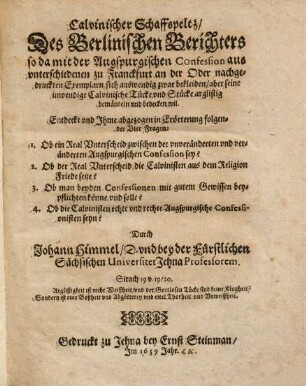 Calvinischer Schaffspeltz/
Des Berlinischen Berichters
so da mit der Augspurgischen Confession aus
vnterschiedenen zu Franckfurt an der Oder nachge-
druckten Exemplarn sich auswendig zwar bekleiden/ aber seine
inwendige Calvinische Tücke vnd Stücke arglistig
bemänteln vnd bedecken wil.
Entdeckt vnd Jhme abgezogen in Erörterung folgen-
der Vier Fragen:
1. Ob ein Real Vnterscheid zwischen der vnveränderten vnd ver-
änderten Augspurgischen Confession sey?
2. Ob der Real Vnterscheid die Calvinisten aus dem Religion
Friede setze?
3. Ob man beyden Confessionen mit gutem Gewissen bey-
pflichten könne vnd solle?
4. Ob die Calvinisten echte vnd rechte Augspurgische Confessi-
onisten seyn?
Durch
Johann Himmel/ D. vnd bey der Fürstlichen
Sächsischen Universitet Jehna Professorem.
Sirach 19 v. 19/20.
Argligkeit ist nicht Weißheit/ vnd der Gottlosen Tücke sind keine Klugheit/
Sondern ist eine Boßheit vnd Abgötterey vnd eitel Thorheit vnd Vnweißheit.
Gedruckt zu Jehna bey Ernst Steinman/
Im 1639 Jahr. &c.